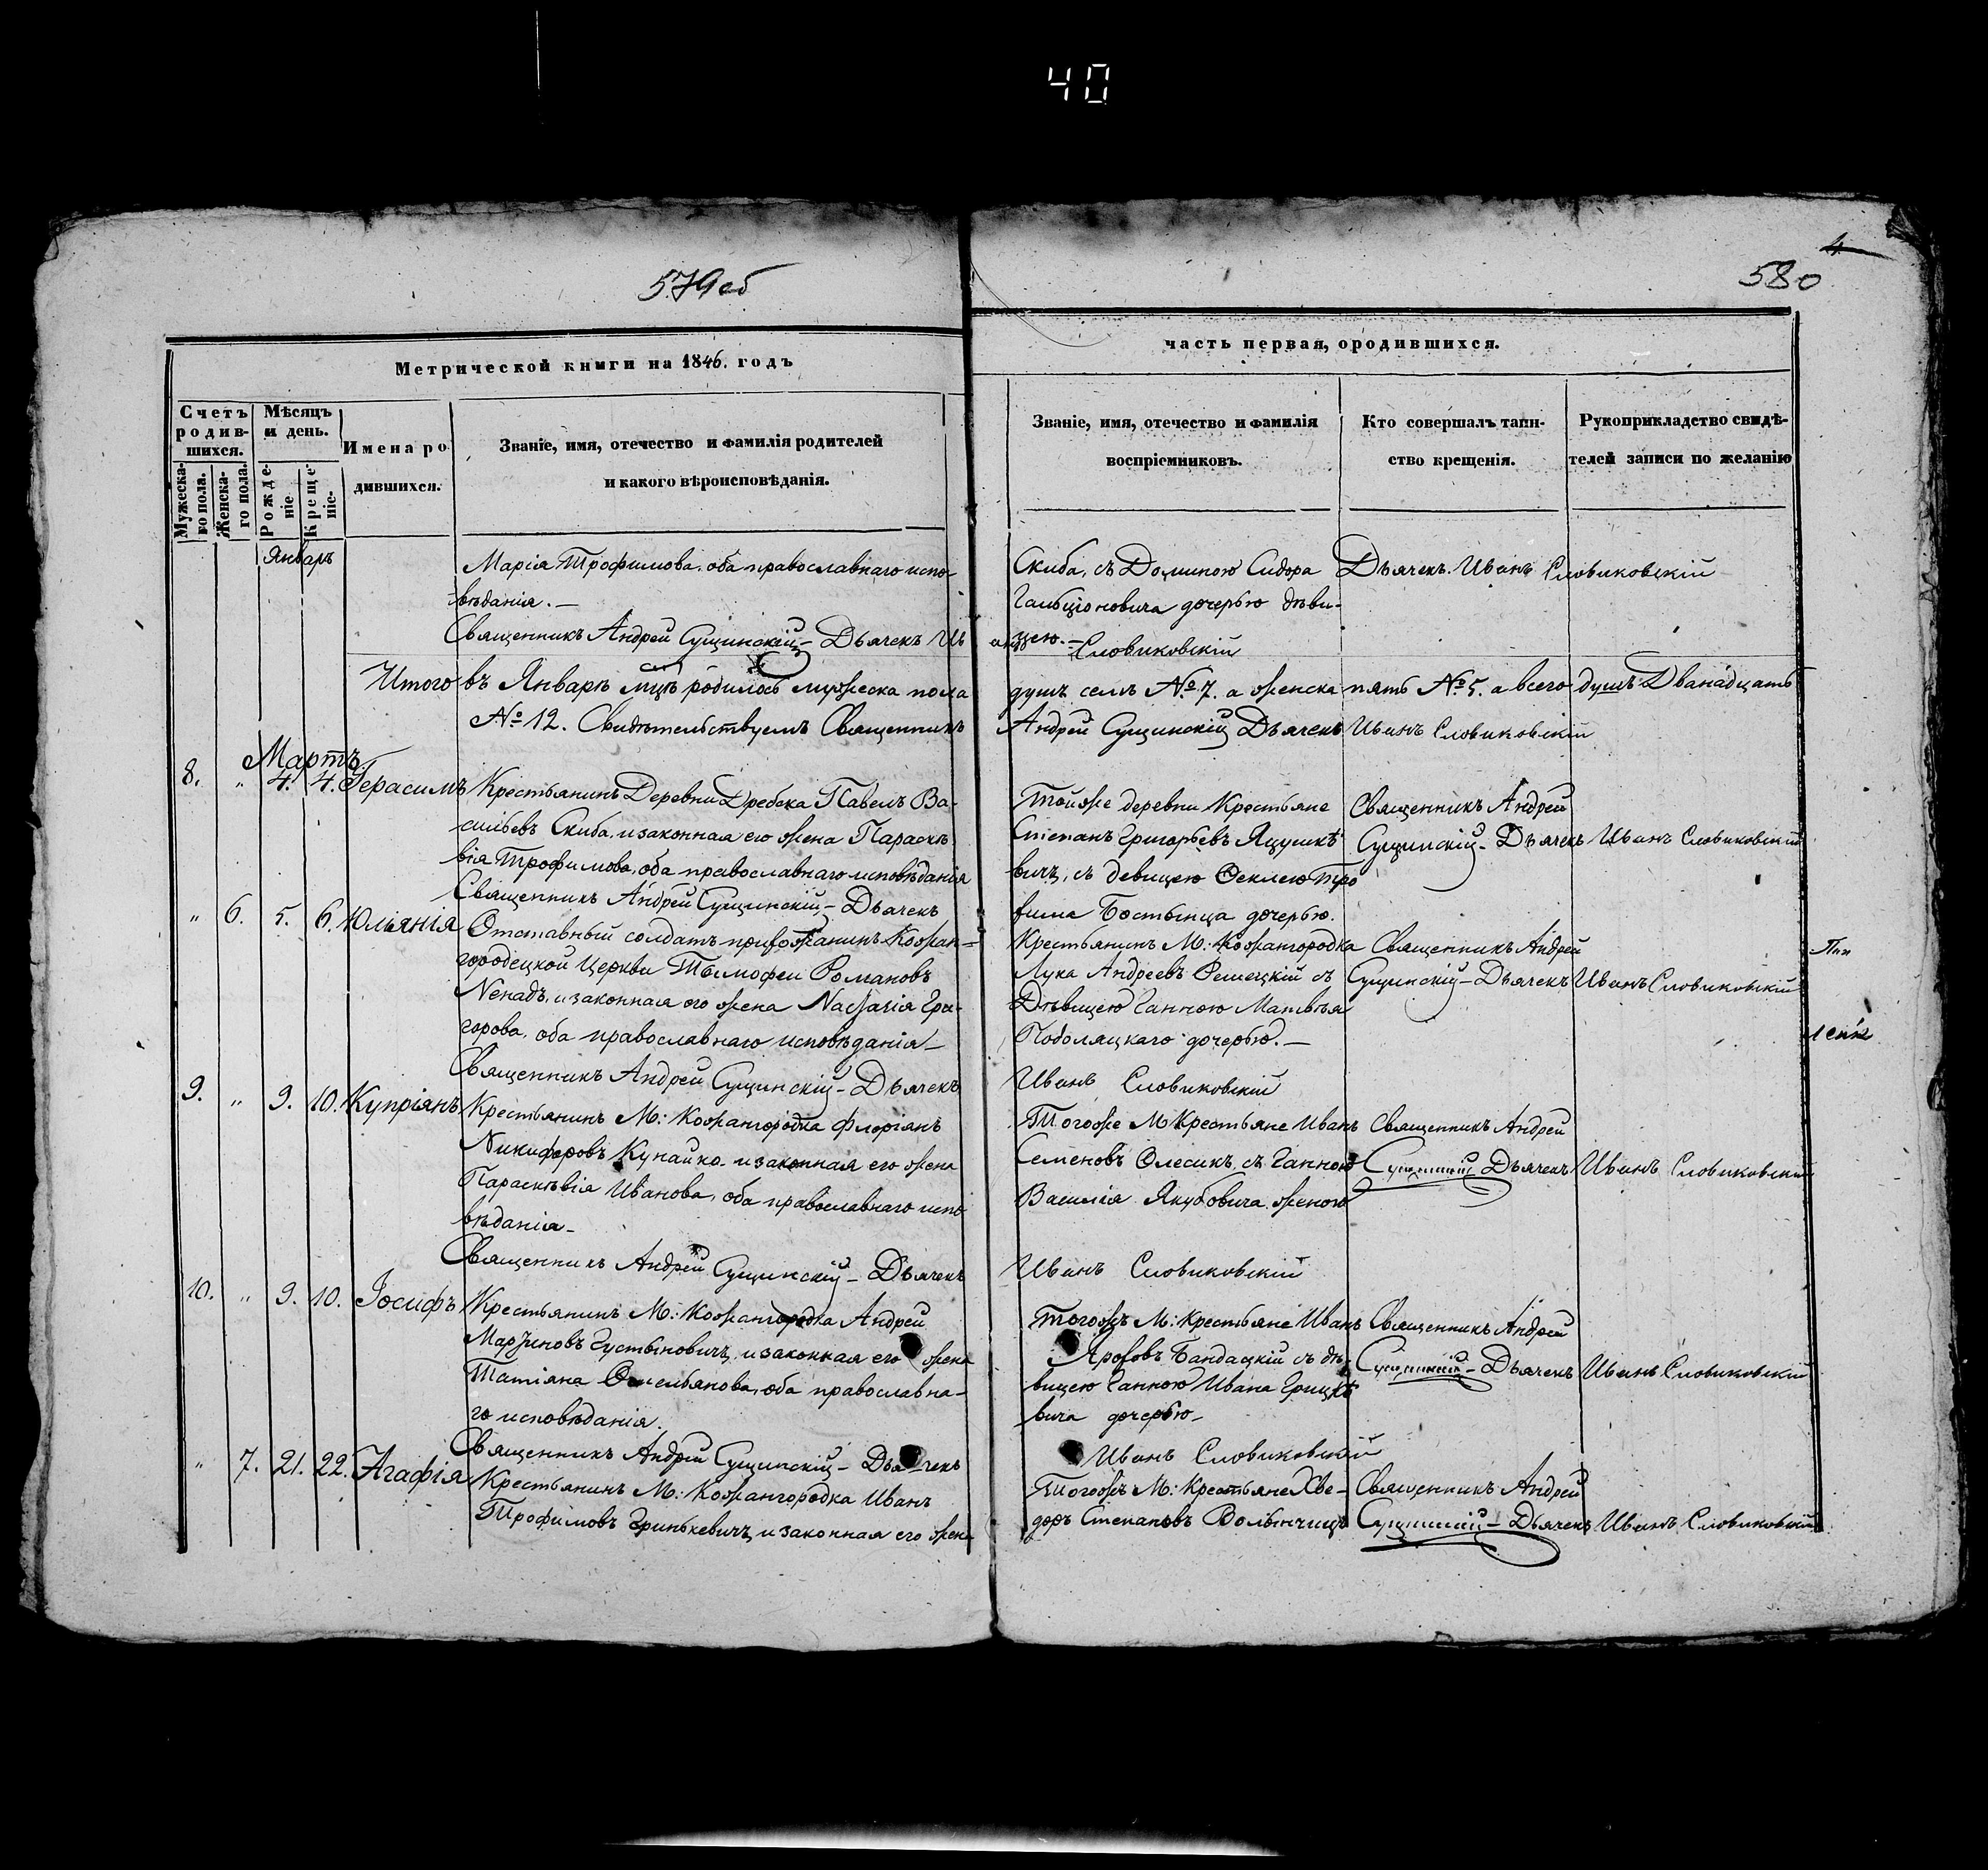 40
579об
Метрической книги на 1846. годъ
Счетъ родив-
шихся.
Мужеска-
го пола.
Женска-
го пола.
Мѣсяцъ
и день.
Рожде-
ніе
Креще-
ніе.
Имена ро
дившихся.
Званіе, имя, отечество и фамилія родителей
и какого вѣроисповѣданія.
Январь
Марія Трофимова, оба православнаго испо-
вѣданія. —
Священникъ Андрей Сущинскій — Дьячекъ Ив
Итого въ Январѣ мцѣ родилось мужеска пола
№ 12. Свидѣтельствуемъ Священникъ
Мартъ
8. " 4. 4. Герасимъ
Крестьянинъ Деревни Дребска Павелъ Ва-
сильевъ Скиба, и законная его жена Параскѣ
вія Трофимова, оба православнаго исповѣданія
Священникъ Андрей Сущинскій — Дьячекъ
" 6. 5. 6. Юліянія
Отставный солдатъ прихожанинъ Кожан-
городецкой Церкви Тымофеи Романовъ
Nенадъ, и законная его жена Григо-
горова, оба православнаго исповѣданія —
Священникъ Андрей Сущинскій — Дьячекъ
9. " 9. 10. Купріянъ
Крестьянинъ М: Кожангородка Флоріянъ
Никифоровъ Кунайко и законная его жена
Параскѣвія Иванова, оба православнаго испо
вѣданія —
Священникъ Андрей Сущинскій — Дьячекъ
10. " 9. 10. Іосифъ
Крестьянинъ М: Кожангородка Андрей
Густыновичъ, и законная его жена
Татіяна Омельянова, оба православна-
го исповѣданія.
Священникъ Андрей Сущинскій — Дьячекъ
" 7. 21. 22. Агафія
Крестьянинъ М: Кожангородка Иванъ
Трофимовъ Гринькевичъ, и законная его жена
4
580
часть первая, ородившихся.
Званіе, имя, отечество и фамилія
воспріемниковъ.
Кто совершалъ таин-
ство крещенія.
Рукоприкладство свидѣ-
телей записи по желанію
Скиба, съ Доминою Сидора
Гальціоновича дочерью дѣви-
цею. —
анъ Словиковскій
Дьячекъ Иванъ Словиковскій
душъ семъ № 7. а женска пять № 5. а всего душъ Дванадцать
Андрей Сущинскій Дьячекъ Иванъ Словиковскій
Тойже деревни Крестьяне
Степанъ Григорьевъ Яцушкѣ
вичъ, съ девицею Феклею Тро
фима Бостынца дочерью.
Священникъ Андрей
Сущинскій — Дьячекъ Иванъ Словиковскій
Крестьянинъ М: Кожангородка
Лука Андреевъ Решецкій съ
Дѣвицею Ганною Матвѣя
Подоляцкаго дочерью. —
Священникъ Андрей
Сущинскій — Дьячекъ Иванъ Словиковскій
Иванъ Словиковскій
Тогоже М Крестьяне Иванъ
Семеновъ Олесикъ, съ Ганною
Василія Якубовича женою
Священникъ Андрей
Сущинскій Дьячекъ Иванъ Словиковскій
Иванъ Словиковскій
Тогожъ М: Крестьяне Иванъ
Бандацкій съ дѣ-
вицею Ганною Ивана Грицкѣ
вича дочерью —
Священникъ Андрей
Сущинскій — Дьячекъ Иванъ Словиковскій
Иванъ Словиковскій
Тогожъ М: Крестьяне Хве-
доръ Степановъ Волынчицъ
Священникъ Андрей
Сущинскій — Дьячекъ Иванъ Словиковскій